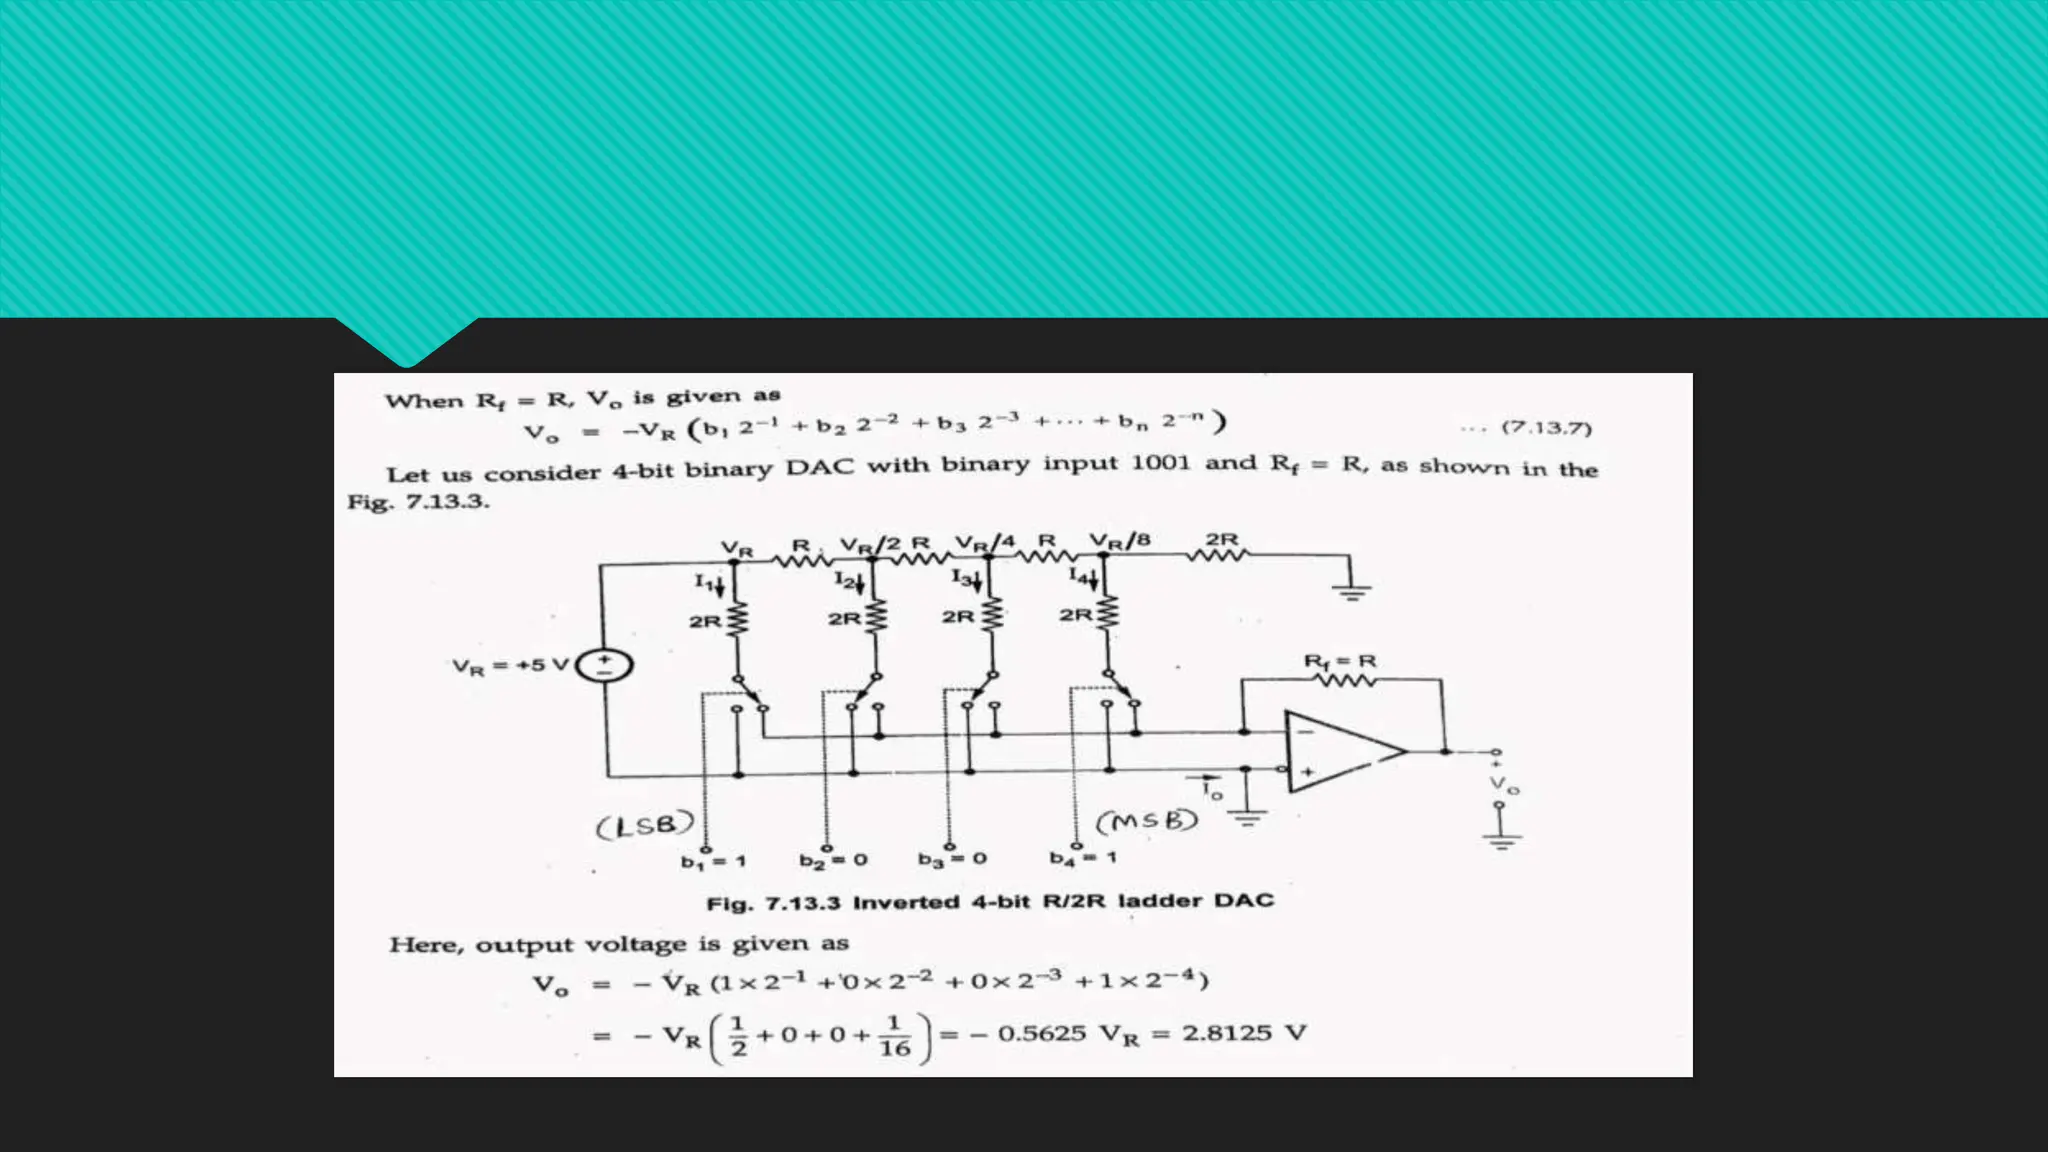 When R_f = R, V_o is given as
V_o = –V_R (b_1 2^{–1} + b_2 2^{–2} + b_3 2^{–3} + ··· + b_n 2^{–n}) ... (7.13.7)
Let us consider 4-bit binary DAC with binary input 1001 and R_f = R, as shown in the
Fig. 7.13.3.
V_R R V_R/2 R V_R/4 R V_R/8 2R
I_1 I_2 I_3 I_4
2R 2R 2R 2R
V_R = +5 V + –
R_f = R
– +
I_o
+ V_o
(LSB) (MSB)
b_1 = 1 b_2 = 0 b_3 = 0 b_4 = 1
Fig. 7.13.3 Inverted 4-bit R/2R ladder DAC
Here, output voltage is given as
V_o = – V_R (1 × 2^{–1} + 0 × 2^{–2} + 0 × 2^{–3} + 1 × 2^{–4})
= – V_R (1/2 + 0 + 0 + 1/16) = – 0.5625 V_R = 2.8125 V